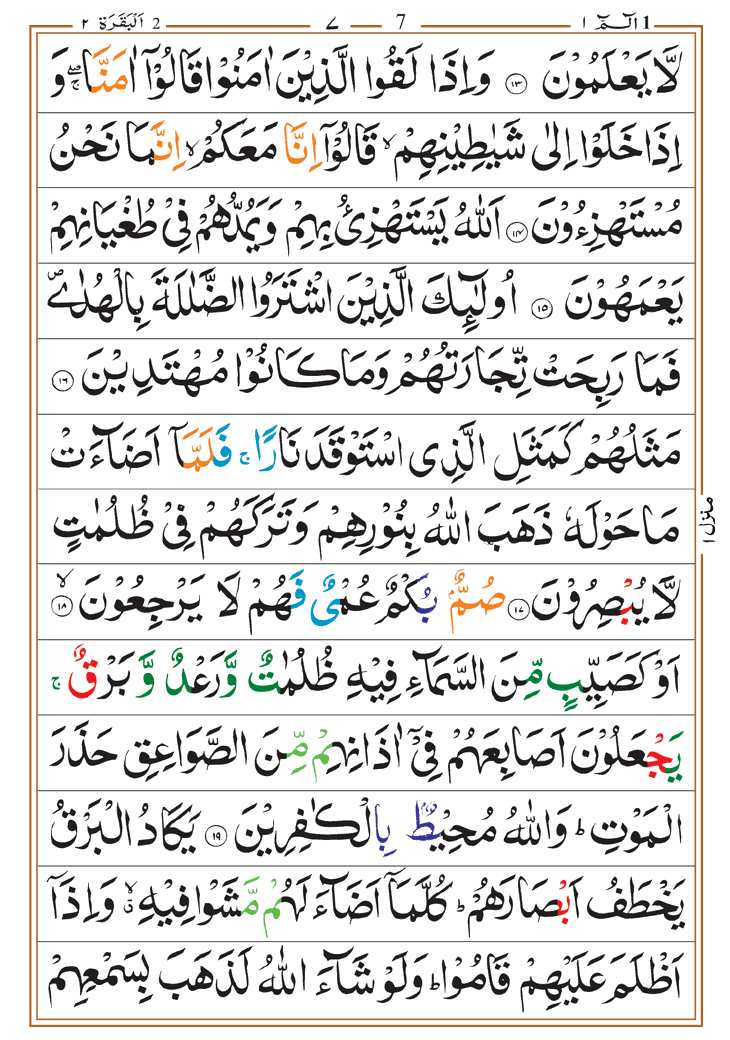 الٓمّٓ ١ 1 7 ٧ 2 اَلْبَقَرَة ٢
لَّا يَعْلَمُوْنَ ۝١٣ وَاِذَا لَقُوا الَّذِيْنَ اٰمَنُوْا قَالُوْٓا اٰمَنَّا ۚۖ وَ
اِذَا خَلَوْا اِلٰى شَيٰطِيْنِهِمْ ۙ قَالُوْٓا اِنَّا مَعَكُمْ ۙ اِنَّمَا نَحْنُ
مُسْتَهْزِءُوْنَ ۝١٤ اَللّٰهُ يَسْتَهْزِئُ بِهِمْ وَيَمُدُّهُمْ فِيْ طُغْيَانِهِمْ
يَعْمَهُوْنَ ۝١٥ اُولٰٓئِكَ الَّذِيْنَ اشْتَرَوُا الضَّلٰلَةَ بِالْهُدٰى ۪
فَمَا رَبِحَتْ تِّجَارَتُهُمْ وَمَا كَانُوْا مُهْتَدِيْنَ ۝١٦
مَثَلُهُمْ كَمَثَلِ الَّذِى اسْتَوْقَدَ نَارًا ۚ فَلَمَّآ اَضَآءَتْ
مَا حَوْلَهٗ ذَهَبَ اللّٰهُ بِنُوْرِهِمْ وَتَرَكَهُمْ فِيْ ظُلُمٰتٍ
لَّا يُبْصِرُوْنَ ۝١٧ صُمٌّۢ بُكْمٌ عُمْيٌ فَهُمْ لَا يَرْجِعُوْنَ ۝١٨ ۙ
اَوْ كَصَيِّبٍ مِّنَ السَّمَآءِ فِيْهِ ظُلُمٰتٌ وَّرَعْدٌ وَّبَرْقٌ ۚ
يَجْعَلُوْنَ اَصَابِعَهُمْ فِيْٓ اٰذَانِهِمْ مِّنَ الصَّوَاعِقِ حَذَرَ
الْمَوْتِ ؕ وَاللّٰهُ مُحِيْطٌۢ بِالْكٰفِرِيْنَ ۝١٩ يَكَادُ الْبَرْقُ
يَخْطَفُ اَبْصَارَهُمْ ؕ كُلَّمَآ اَضَآءَ لَهُمْ مَّشَوْا فِيْهِ ۙۗ وَاِذَآ
اَظْلَمَ عَلَيْهِمْ قَامُوْا ؕ وَلَوْ شَآءَ اللّٰهُ لَذَهَبَ بِسَمْعِهِمْ
منزل ١